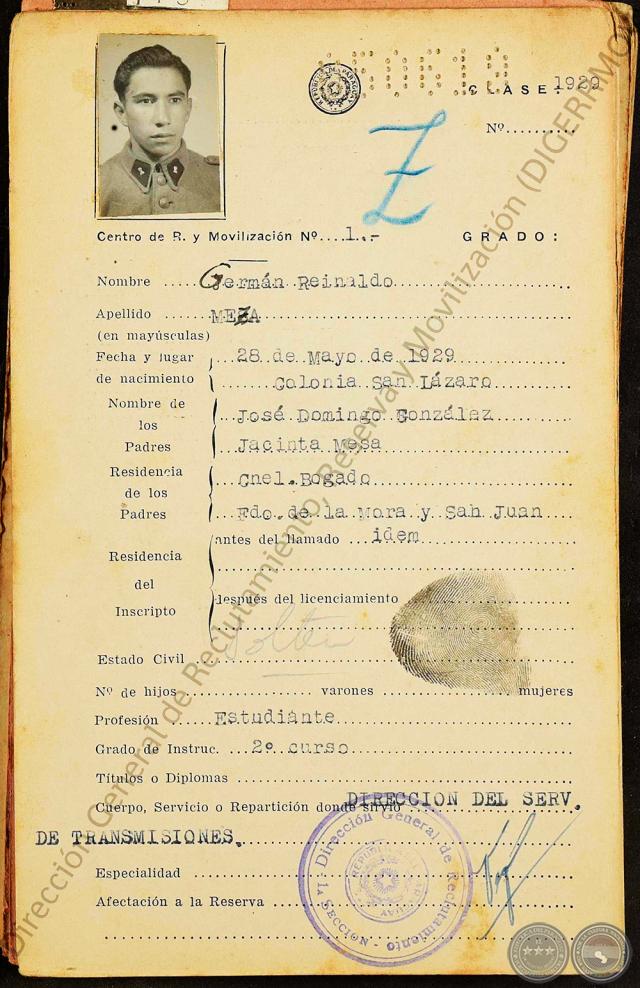 CLASE: 1929
Nº
Z
Centro de R. y Movilización Nº 1.- GRADO:
Nombre Germán Reinaldo
Apellido MEZA
(en mayúsculas)
Fecha y lugar de nacimiento 28 de Mayo de 1929
Colonia San Lázaro
Nombre de los Padres José Domingo González
Jacinta Mesa
Residencia de los Padres Cnel. Bogado
Fdo. de la Mora y San Juan
Residencia del Inscripto antes del llamado idem
después del licenciamiento
Estado Civil Soltero
Nº de hijos varones mujeres
Profesión Estudiante
Grado de Instruc. 2º curso
Títulos o Diplomas
Cuerpo, Servicio o Repartición donde sirvió DIRECCION DEL SERV.
DE TRANSMISIONES.
Especialidad
Afectación a la Reserva
REPUBLICA DEL PARAGUAY
Dirección General de Reclutamiento
1ª SECCION
REPUBLICA PARAGUAY
Dirección General de Reclutamiento, Reserva y Movilización (DIGERRMOV